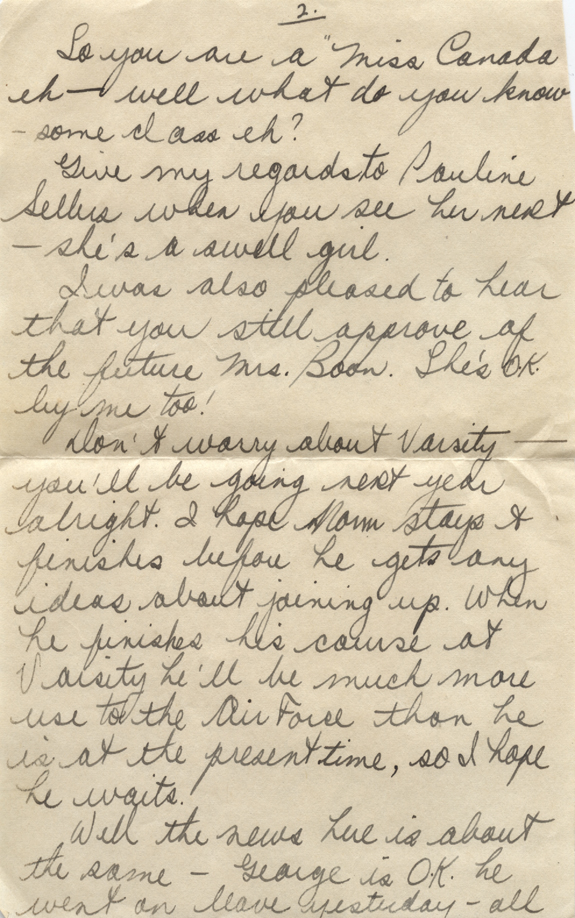 2.
So you are a "Miss Canada
eh — well what do you know
- some class eh?
Give my regards to Pauline
Sellers when you see her next
— she's a swell girl.
I was also pleased to hear
that you still approve of
the future Mrs. Boon. She's O.K.
by me too!
Don't worry about Varsity —
you'll be going next year
alright. I hope Norm stays &
finishes before he gets any
ideas about joining up. When
he finishes his course at
Varsity he'll be much more
use to the Air Force than he
is at the present time, so I hope
he waits.
Well the news here is about
the same — George is O.K. he
went on leave yesterday - all